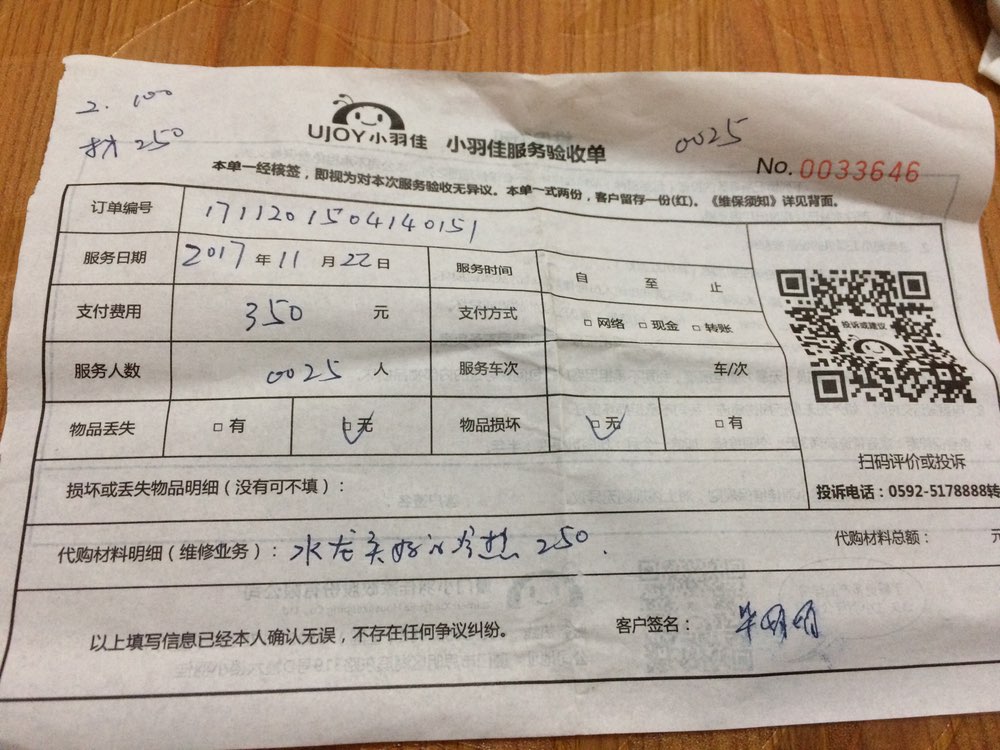 2. 100
材 250
UJOY小羽佳 小羽佳服务验收单
0025
No. 0033646
本单一经核签，即视为对本次服务验收无异议。本单一式两份，客户留存一份(红)。《维保须知》详见背面。
订单编号 171120150414 0151
服务日期 2017 年 11 月 22 日 服务时间 自 至 止
支付费用 350 元 支付方式 □ 网络 □ 现金 □ 转账
投诉或建议
服务人数 0025 人 服务车次 车/次
物品丢失 □ 有 □ 无 物品损坏 □ 无 □ 有
扫码评价或投诉
损坏或丢失物品明细（没有可不填）：
投诉电话：0592-5178888转
代购材料明细（维修业务）： 水龙头 冷热 250.
代购材料总额： 元
以上填写信息已经本人确认无误，不存在任何争议纠纷。 客户签名：